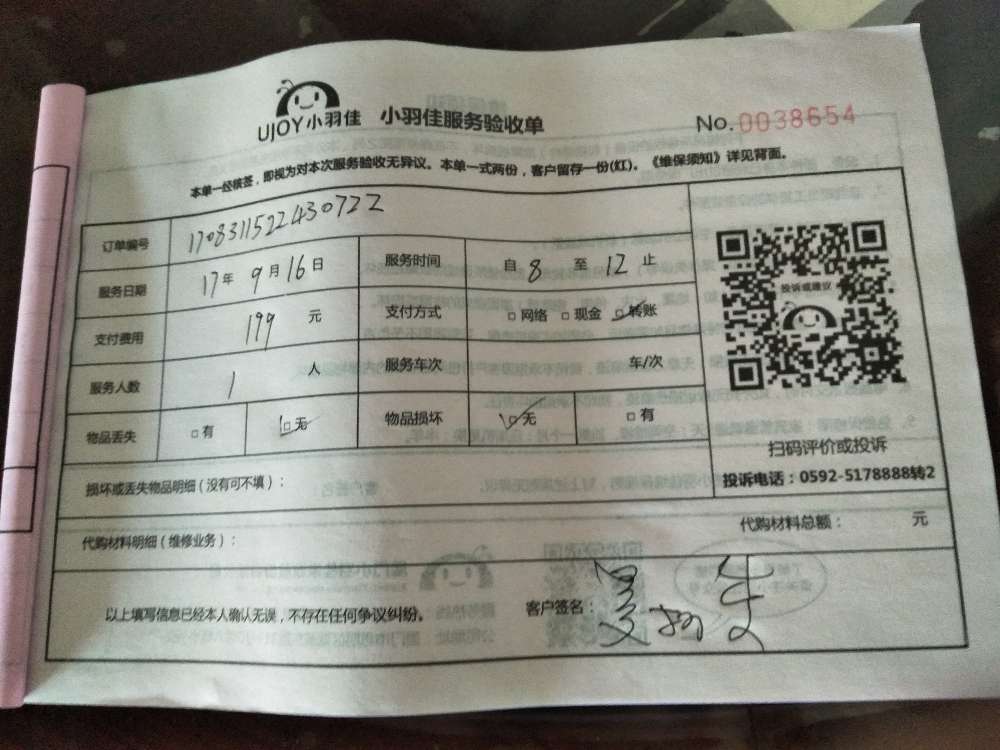 UJOY小羽佳 小羽佳服务验收单 No.0038654
本单一经核签，即视为对本次服务验收无异议。本单一式两份，客户留存一份(红)。《维保须知》详见背面。
订单编号 170831152243072 2
服务日期 17年9月16日 服务时间 自8至12止
支付费用 199元 支付方式 □网络 □现金 □转账
服务人数 1人 服务车次 车/次
物品丢失 □有 □无 物品损坏 □无 □有
投诉或建议
扫码评价或投诉
投诉电话：0592-5178888转2
损坏或丢失物品明细（没有可不填）：
代购材料明细（维修业务）： 代购材料总额： 元
以上填写信息已经本人确认无误，不存在任何争议纠纷。 客户签名：